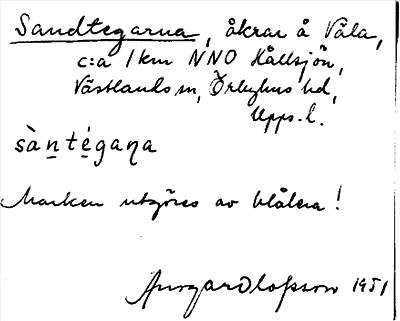 Sandtegarna, åkrar å Våla,
c:a 1 km NNO Hållsjön,
Västlands sn, Örbyhus hd,
Upps. l.
sàn̠té̠gaɳa
Marken utgöres av blålera!
Olofsson 1951